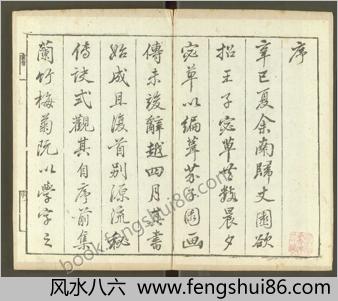 序
辛巳夏余南歸文園欲
招王子宓草晤數晨夕
宓草以編葺芥子園画
傳未竣辭越四月其書
始成且渡首别源流
傳訣式觀其自序前集
蘭竹梅菊既以學字之
book.fengshui86.com
风水八六 www.fengshui86.com